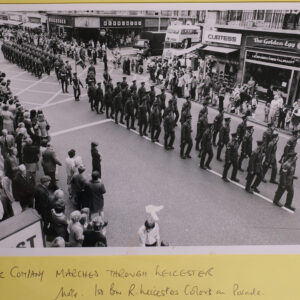 CURTESS
The Golden Egg
COMPANY MARCHED THROUGH LEICESTER
Note. 1st Bn R. Leicesters Colours on Parade.